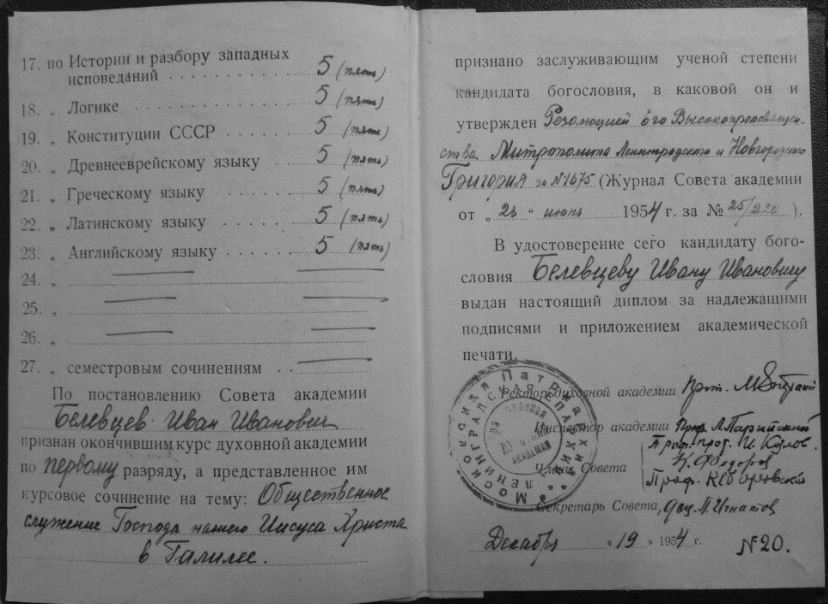 17. по Истории и разбору западных
исповеданий . . . . . . . . . . 5 (пять)
18. „ Логике . . . . . . . . . . 5 (пять)
19. „ Конституции СССР . . . . . . 5 (пять)
20. „ Древнееврейскому языку . . . . 5 (пять)
21. „ Греческому языку . . . . . . 5 (пять)
22. „ Латинскому языку . . . . . . 5 (пять)
23. „ Английскому языку . . . . . . 5 (пять)
24. „
25. „
26. „
27. „ семестровым сочинениям . .
По постановлению Совета академии
Белевцев Иван Иванович
признан окончившим курс духовной академии
по первому разряду, а представленное им
курсовое сочинение на тему: Общественное
служение Господа нашего Иисуса Христа
в Галилее.
признано заслуживающим ученой степени
кандидата богословия, в каковой он и
утвержден Резолюцией Его Высокопреосвящен-
ства Митрополита Ленинградского и Новгородского
Григория за №1675 (Журнал Совета академии
от „ 23 " июнь 1954 г. за № 25/220 ).
В удостоверение сего кандидату бого-
словия Белевцеву Ивану Ивановичу
выдан настоящий диплом за надлежащими
подписями и приложением академической
печати.
Московская Патриархия
Ленинградская Епархия
Ректор духовной академии Прот. М.
Инспектор академии Проф. Л. Парийский
Проф. прот. И. Козлов.
Члены Совета К. Федоров
Проф.
Секретарь Совета, доц. П. Игнатов
Декабря „ 19 " 1954 г. № 20.